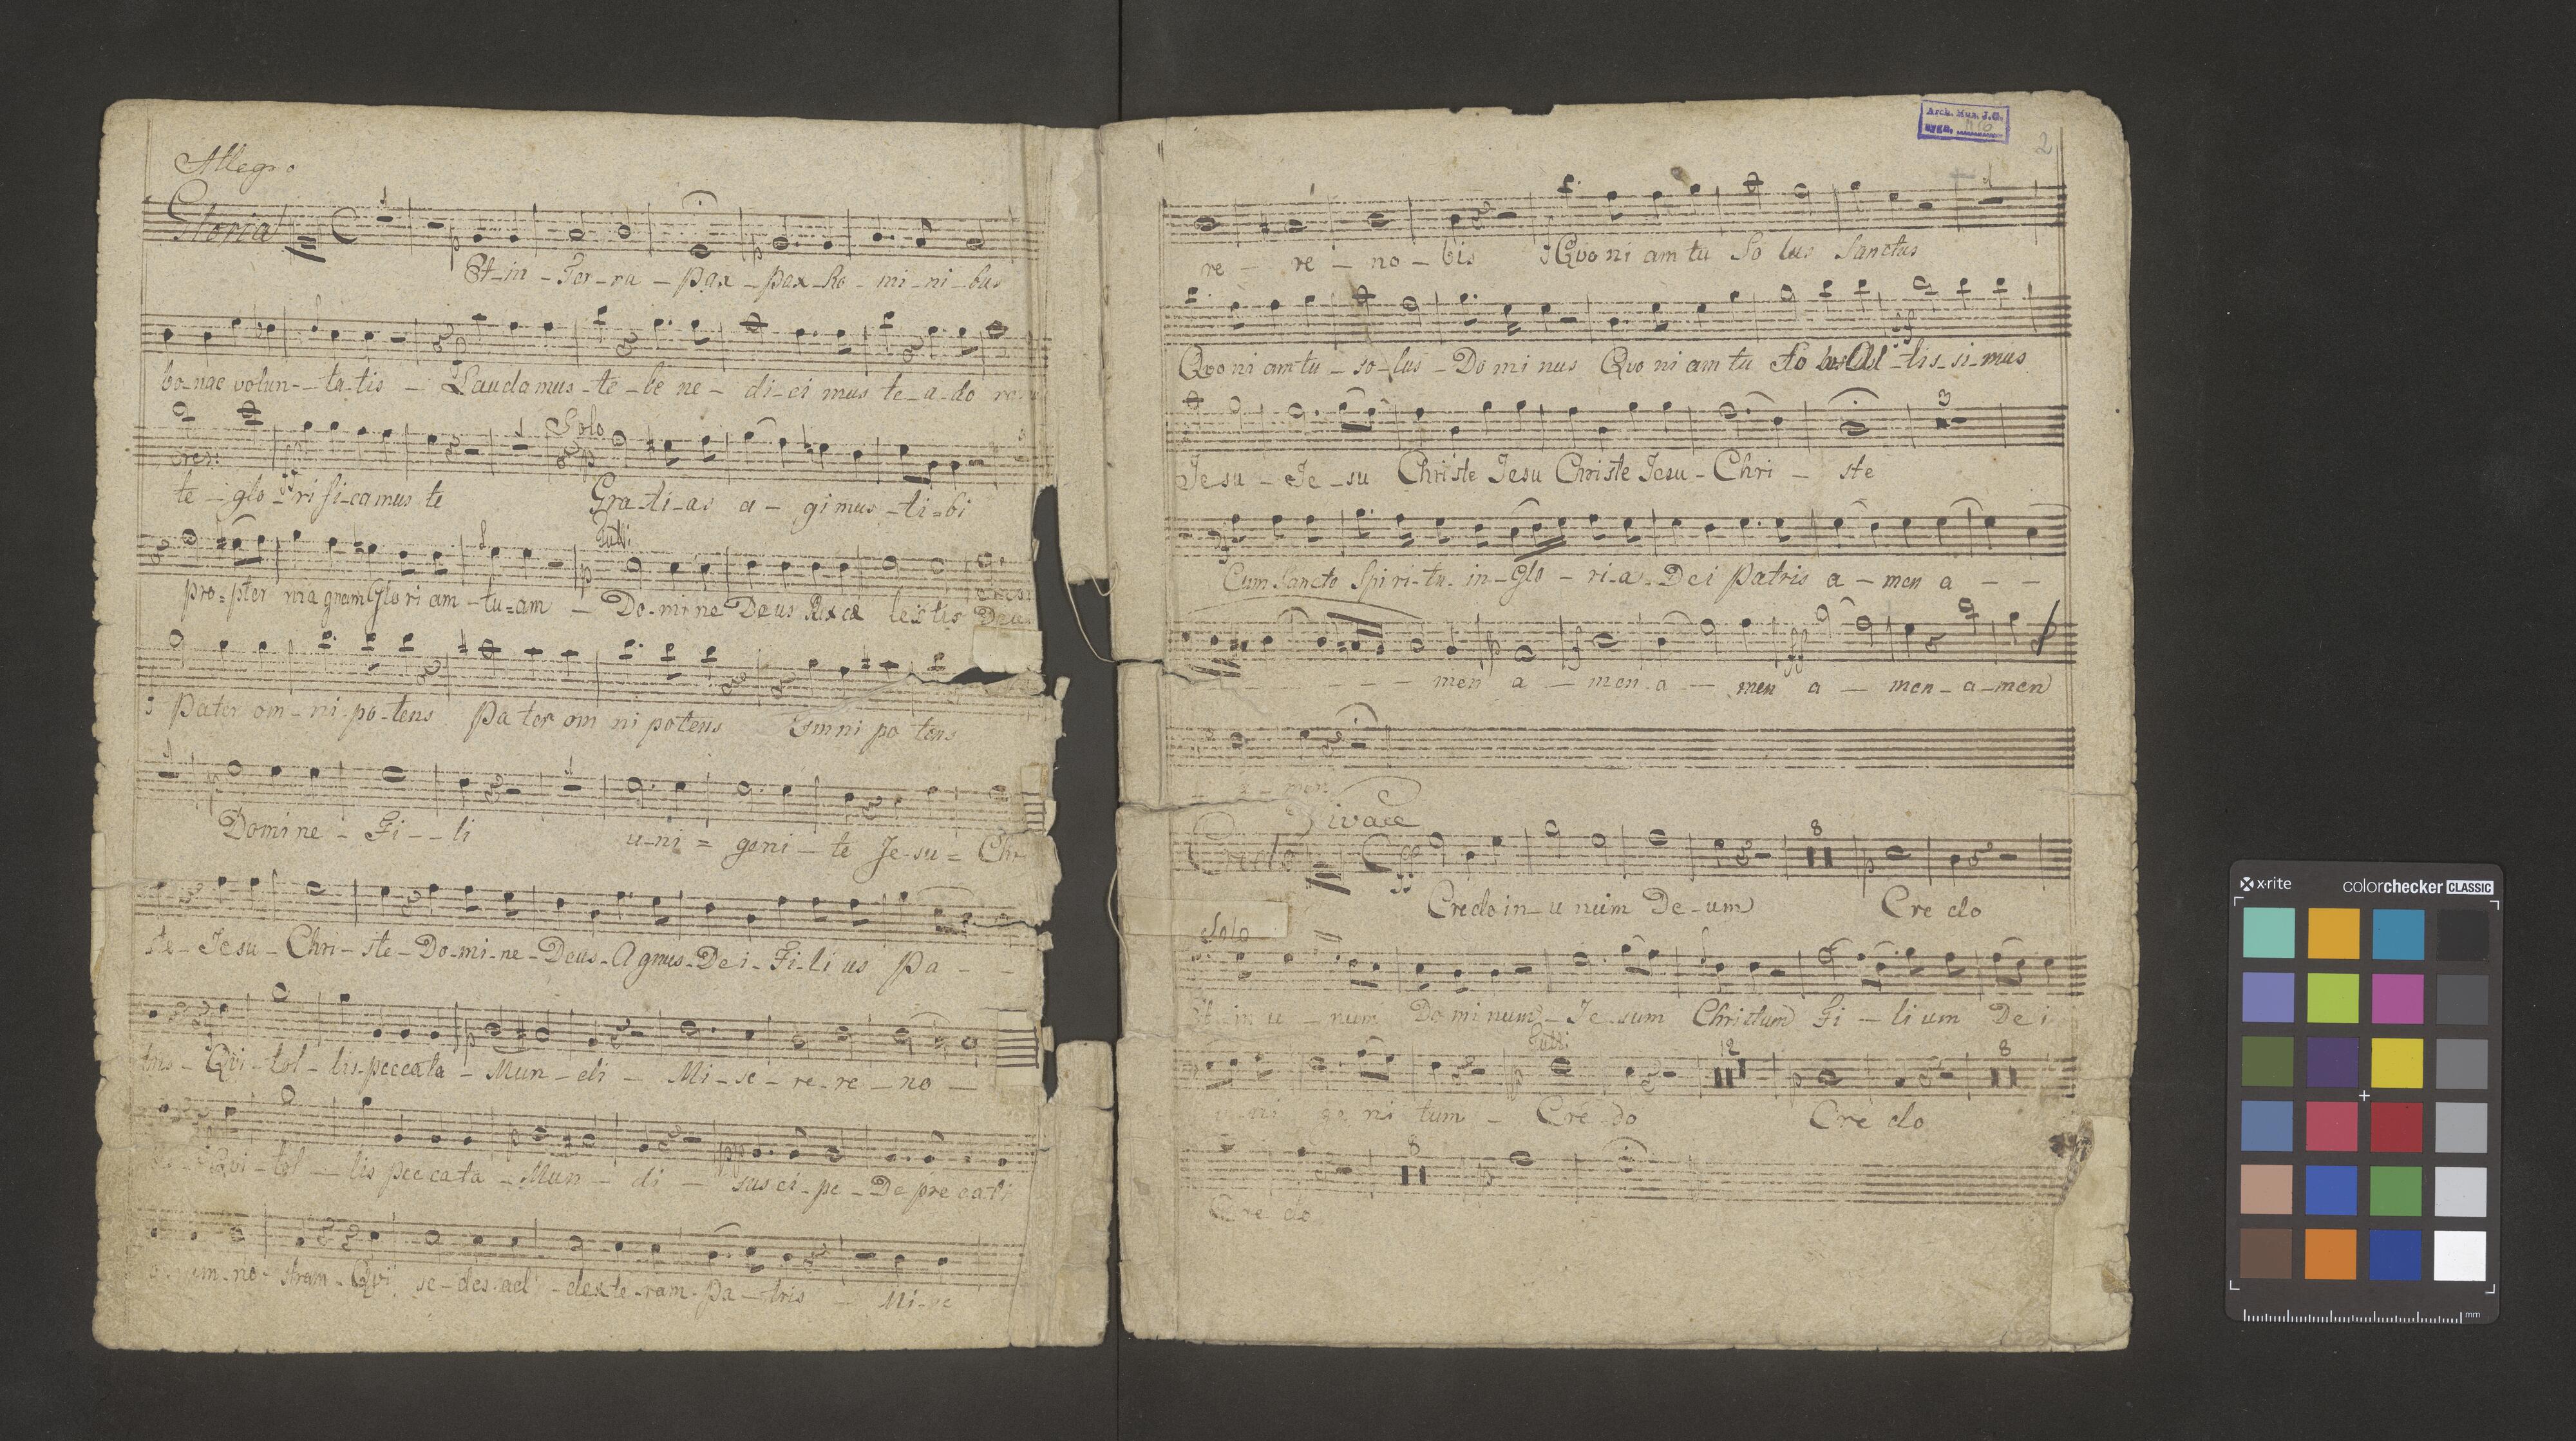 Allegro
Gloria
Et-in-Ter-ra-pax-pax-Ho-mi-ni-bus
bo-nae volun--ta-tis-Laudamus-te-be ne-di-ci mus te-a-do ra
Solo
cres:
te-glo-ri fi-camus te Gra-ti-as a-gimus-ti=bi
Tutti
pro=pter magnam Glo ri am-tu=am-Do-mi ne Deus Rex cæ lestis Deu
Pater om-ni-po-tens Pa ter om ni potens Omni po tens
Domine-Fi--li u-ni=geni-te Je-su=Chr
ste-Jesu-Chri-ste-Do-mi-ne-Deus-Agnus-Dei-Fi-li us Pa--
tris-Qvi-tol-lis-peccata-Mun-di-Mi-se-re-re-no-
Qvi-tol-lis peccata-Mun-di-sus ci-pe-De pre cati
o-nem-no-stram-Qvi se-des-ad-dexte-ram-Pa-tris-Mi-se
Arch. Muz. J.G.
sygn.
2
re-re-no-bis Qvo ni am tu So lus Sanctus
3
Qvo ni am tu-so-lus-Do mi nus Qvo ni am tu so lus Al-tis-si-mus
Je su-Je-su Christe Jesu Christe Jesu-Chri-ste
Cum Sancto Spi ri-tu-in-Glo-ri-a-Dei Patris a-men a--
--men a-men-a-men a-men-a-men
a-men
Vivace
Credo
8
Credo in-u num De-um Cre do
Solo
Et in u-num Do mi num-Je-sum Christum Fi-li um De i
Tutti
12
8
u-ni ge ni tum-Cre-do Cre do
8
Cre do
x-rite
colorchecker CLASSIC
mm